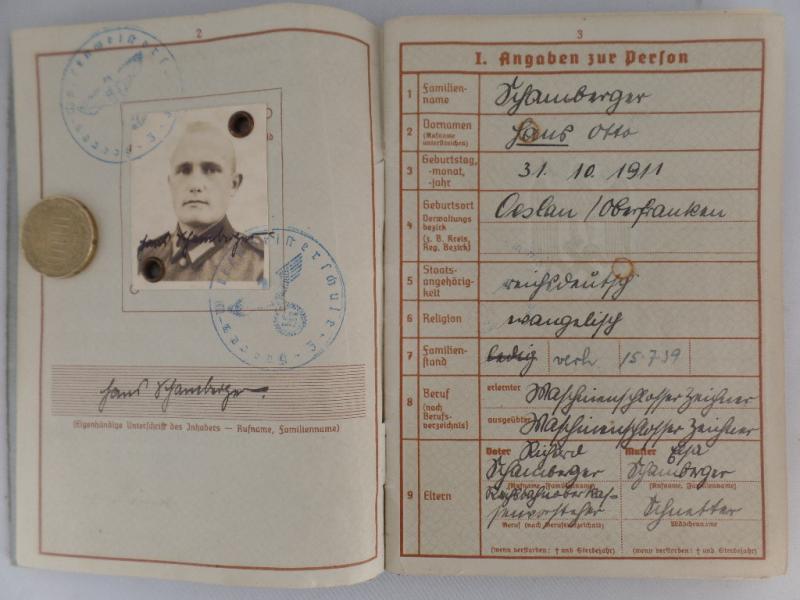 2
Hans Schamberger
Hans Schamberger.
(Eigenhändige Unterschrift des Inhabers — Rufname, Familienname)
3
I. Angaben zur Person
1 Familien-
name Schamberger
2 Vornamen
(Rufname
unterstreichen) Hans Otto
3 Geburtstag,
-monat,
-jahr 31. 10. 1911
4 Geburtsort
Verwaltungs
bezirk
(z. B. Kreis,
Reg. Bezirk) Oeslau / Oberfranken
5 Staats-
angehörig-
keit reichsdeutsch
6 Religion evangelisch
7 Familien-
stand ledig verh 15.7.39
8 Beruf
(nach
Berufs-
verzeichnis)
erlernter Maschinenschlosser Zeichner
ausgeübter Maschinenschlosser Zeichner
9 Eltern
Vater Richard
Schamberger
(Rufname, Familienname)
Reichsbahnoberkas-
senvorsteher
Beruf (nach Berufsverzeichnis)
(wenn verstorben: † und Sterbejahr)
Mutter
Schamberger
(Rufname, Familienname)
Schnetter
Mädchenname
(wenn verstorben: † und Sterbejahr)